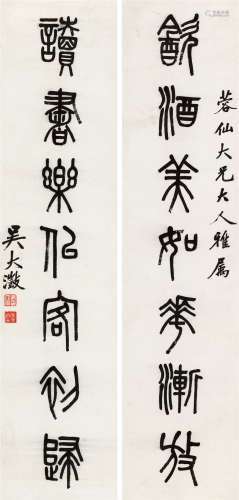 蓉仙大兄大人雅属
飲酒美如華漸放
讀書樂似客初歸
吳大澂